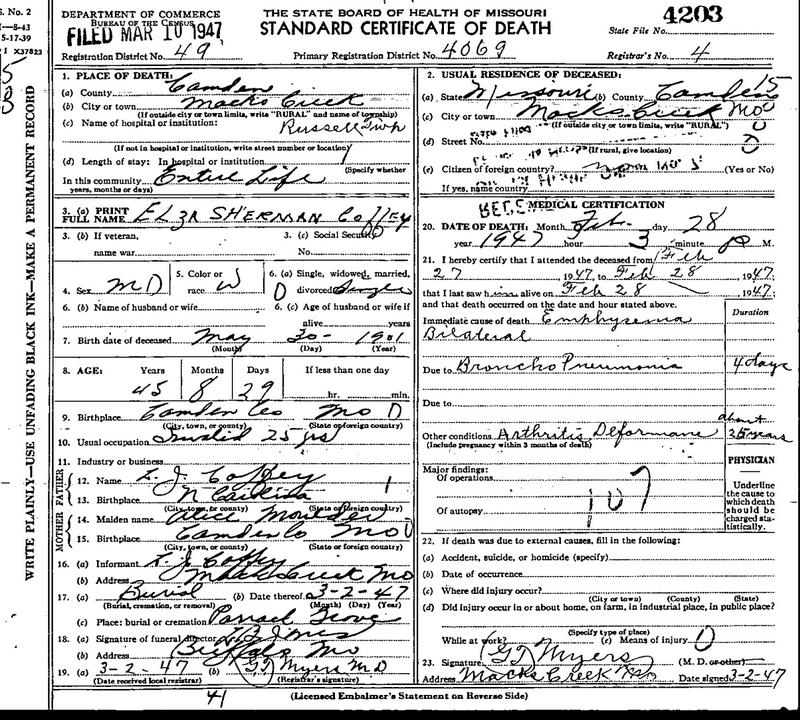 S. No. 2
DEPARTMENT OF COMMERCE
BUREAU OF THE CENSUS
FILED MAR 10 1947
THE STATE BOARD OF HEALTH OF MISSOURI
STANDARD CERTIFICATE OF DEATH
4203
State File No.
Registration District No. 49
Primary Registration District No. 4069
Registrar's No. 4
5-17-39
X37823
WRITE PLAINLY—USE UNFADING BLACK INK—MAKE A PERMANENT RECORD
1. PLACE OF DEATH:
(a) County Camden
(b) City or town Macks Creek
(If outside city or town limits, write "RURAL" and name of township)
(c) Name of hospital or institution:
Russell Twp
(If not in hospital or institution, write street number or location)
(d) Length of stay: In hospital or institution
(Specify whether
In this community Entire Life
years, months or days)
3. (a) PRINT FULL NAME ELZA SHERMAN Coffey
3. (b) If veteran, name war
3. (c) Social Security No.
4. Sex M
5. Color or race W
6. (a) Single, widowed, married, divorced Single
6. (b) Name of husband or wife
6. (c) Age of husband or wife if alive years
7. Birth date of deceased May 30 1901
(Month) (Day) (Year)
8. AGE: Years Months Days If less than one day
45 8 29 hr. min.
9. Birthplace Camden Co Mo
(City, town, or county) (State or foreign country)
10. Usual occupation Invalid 25 yrs
11. Industry or business
FATHER
12. Name L. J. Coffey
13. Birthplace N Carolina
(City, town, or county) (State or foreign country)
MOTHER
14. Maiden name Alice Moulder
15. Birthplace Camden Co Mo
(City, town, or county) (State or foreign country)
16. (a) Informant L. J. Coffey
(b) Address Macks Creek Mo
17. (a) Burial (b) Date thereof 3-2-47
(Burial, cremation, or removal) (Month) (Day) (Year)
(c) Place: burial or cremation Grove
18. (a) Signature of funeral director Jones
(b) Address Buffalo Mo
19. (a) 3-2-47 (b) GT Myers M D
(Date received local registrar) (Registrar's signature)
2. USUAL RESIDENCE OF DECEASED:
(a) State Missouri (b) County Camden 15
(c) City or town Macks Creek Mo
(If outside city or town limits, write "RURAL")
(d) Street No.
(If rural, give location)
(e) Citizen of foreign country? (Yes or No)
If yes, name country
MEDICAL CERTIFICATION
20. DATE OF DEATH: Month Feb. day 28
year 1947 hour 3 minute P M.
21. I hereby certify that I attended the deceased from Feb
27, 1947, to Feb 28, 1947,
that I last saw him alive on Feb 28, 1947,
and that death occurred on the date and hour stated above.
Duration
Immediate cause of death Emphysema
Bilateral
Due to Broncho Pneumonia 4 days
Due to
Other conditions Arthritis Deformans about 25 years
(Include pregnancy within 3 months of death)
PHYSICIAN
Major findings:
Of operations
107
Of autopsy
Underline the cause to which death should be charged statistically.
22. If death was due to external causes, fill in the following:
(a) Accident, suicide, or homicide (specify)
(b) Date of occurrence
(c) Where did injury occur?
(City or town) (County) (State)
(d) Did injury occur in or about home, on farm, in industrial place, in public place?
(Specify type of place)
While at work? (e) Means of injury
23. Signature GT Myers (M. D. or other)
Address Macks Creek Mo Date signed 3-2-47
41
(Licensed Embalmer's Statement on Reverse Side)